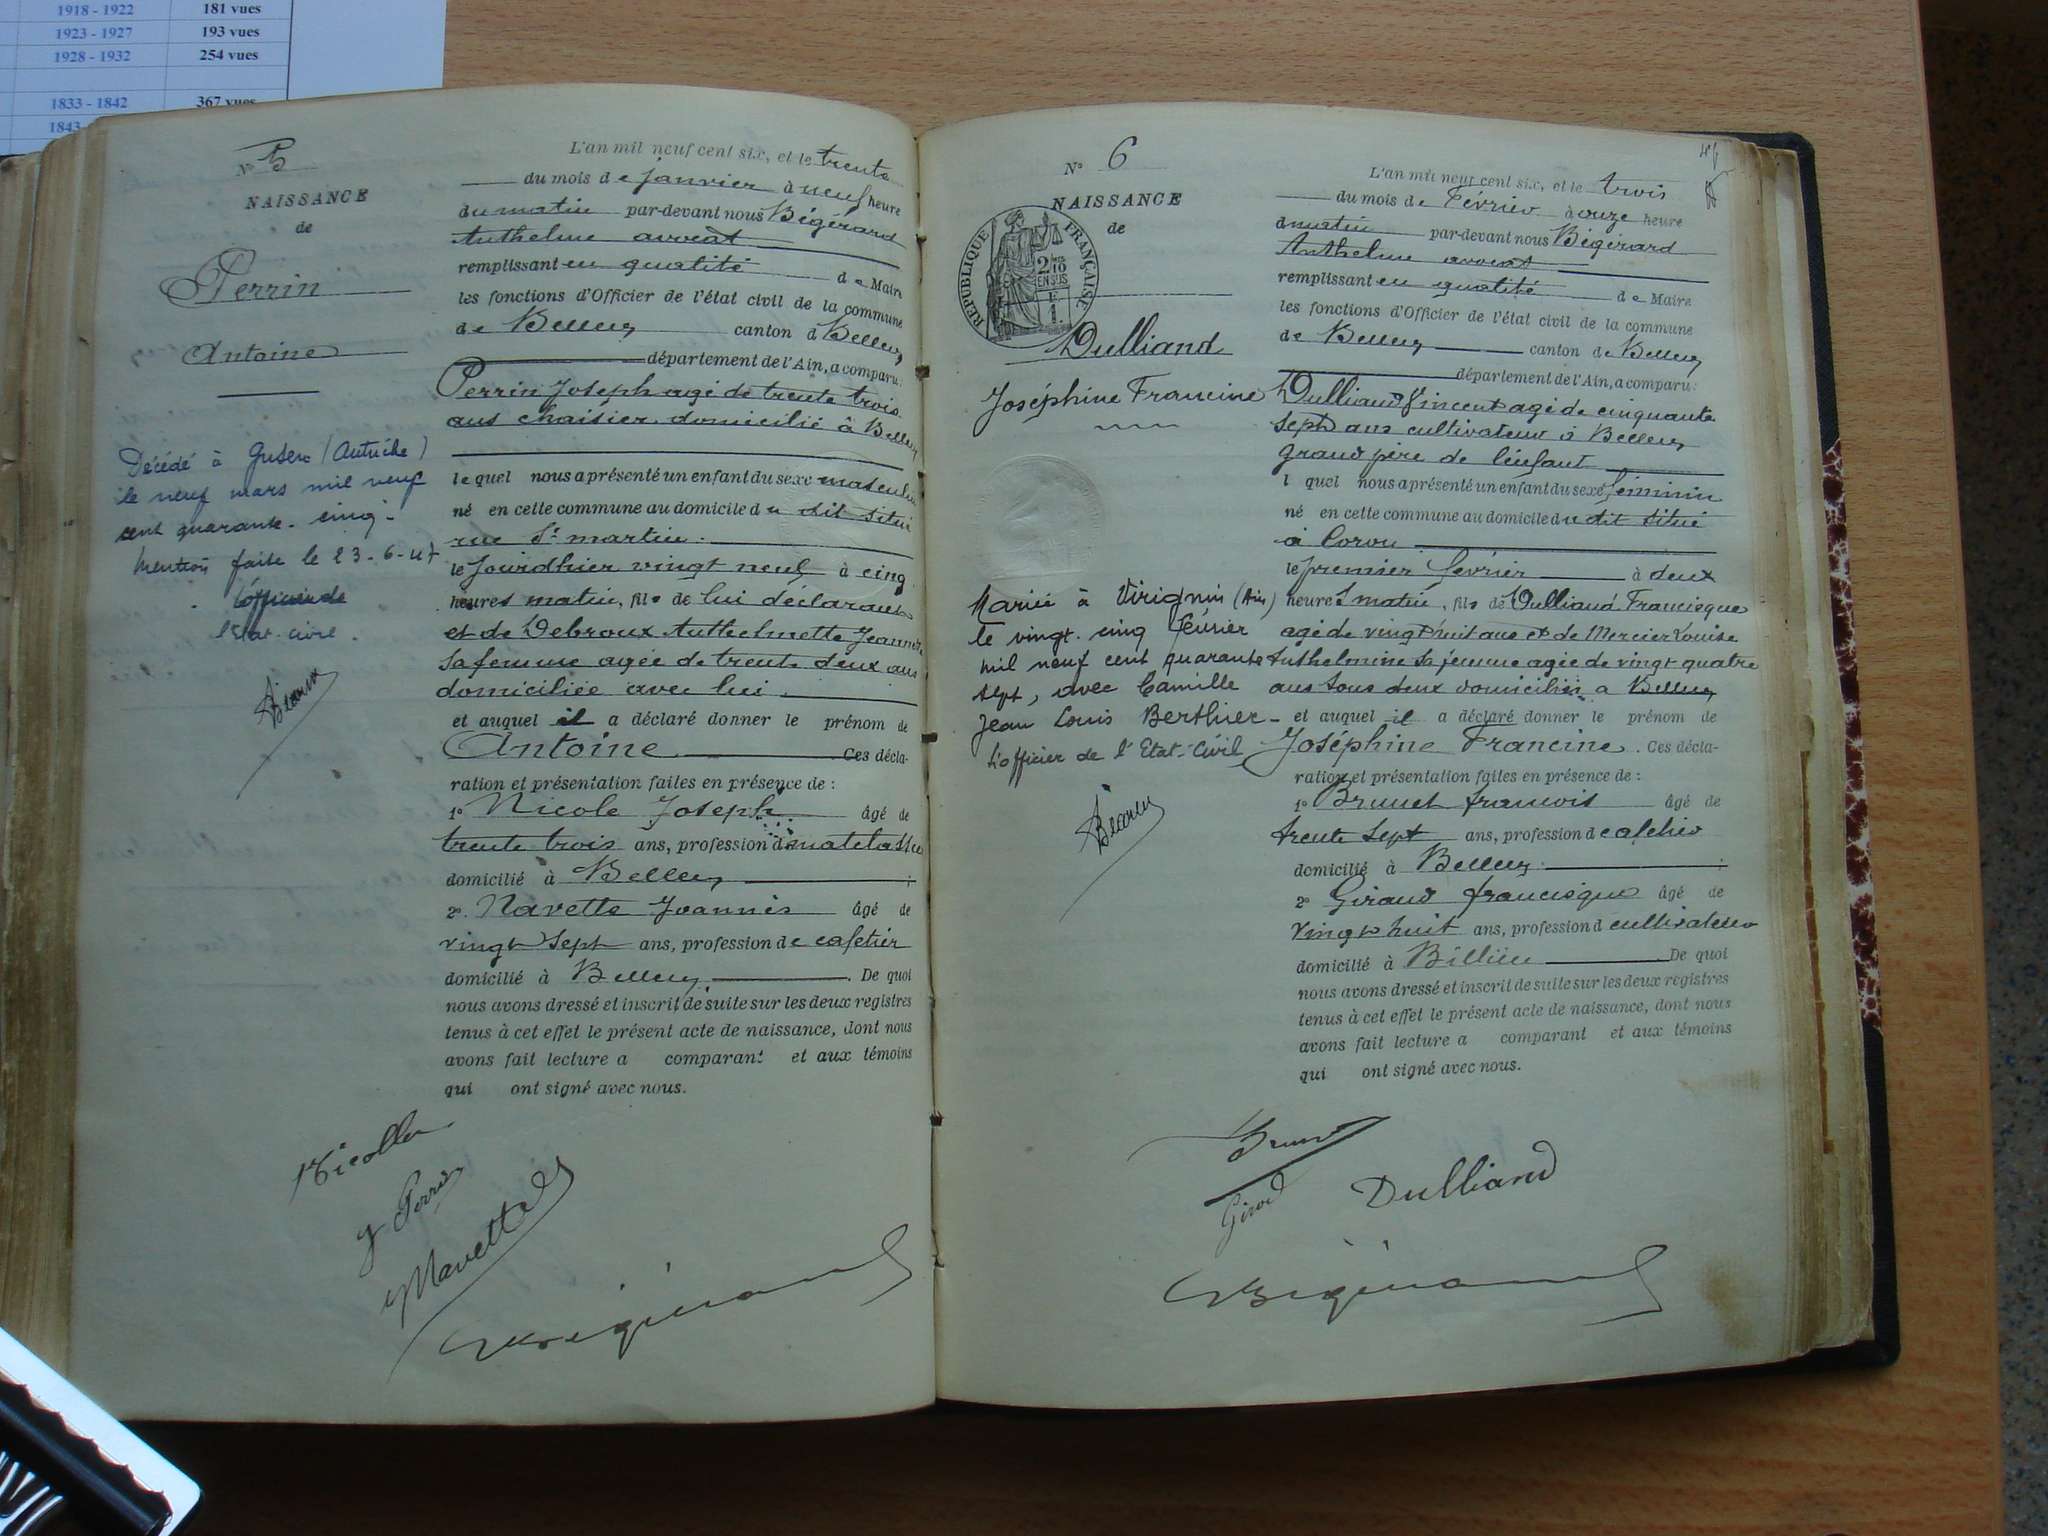 1918 - 1922 181 vues
1923 - 1927 193 vues
1928 - 1932 254 vues
1833 - 1842 367 vues
1843
N° 5
NAISSANCE
de
Perrin
Antoine
Décédé à Gusen (Autriche)
le neuf mars mil neuf
cent quarante-cinq.
Mention faite le 23-6-47
l'officier de
l'Etat-civil.
L'an mil neuf cent six, et le trente
du mois de janvier à neuf heure
du matin par-devant nous Bégérard
Anthelme avocat
remplissant en qualité de Maire
les fonctions d'Officier de l'état civil de la commune
de Belley canton d Belley
département de l'Ain, a comparu:
Perrin Joseph agé de trente trois
ans chaisier domicilié à Belley
le quel nous a présenté un enfant du sexe masculin
né en cette commune au domicile du dit situé
rue St martin.
le jourdhier vingt neuf à cinq
heures matin, fils de lui déclarant
et de Debroux Anthelmette Jeannette
sa femme agée de trente deux ans
domiciliée avec lui
et auquel il a déclaré donner le prénom de
Antoine Ces décla-
ration et présentation faites en présence de :
1° Nicole Joseph âgé de
trente trois ans, profession d matelassier
domicilié à Belley ;
2° Navette Joannès âgé de
vingt sept ans, profession de cafetier
domicilié à Belley. De quoi
nous avons dressé et inscrit de suite sur les deux registres
tenus à cet effet le présent acte de naissance, dont nous
avons fait lecture a comparant et aux témoins
qui ont signé avec nous.
J Perrin
Navette
N° 6
NAISSANCE
de
RÉPUBLIQUE FRANÇAISE
2/10
EN SUS
1
Dulliand
Joséphine Francine
Mariée à Virignin (Ain)
le vingt-cinq février
mil neuf cent quarante
sept, avec Camille
Jean Louis Berthier-
L'officier de l'Etat-Civil
L'an mil neuf cent six, et le trois
du mois de Février à onze heure
d matin par-devant nous Bégérard
Anthelme avocat
remplissant en qualité de Maire
les fonctions d'Officier de l'état civil de la commune
de Belley canton de Belley
département de l'Ain, a comparu:
Dulliand Vincent agé de cinquante
sept ans cultivateur à Belley
grand père de l'enfant
l quel nous a présenté un enfant du sexe féminin
né en cette commune au domicile du dit situé
à Coron
le premier février à deux
heures matin, fils de Dulliand Francisque
agé de vingt huit ans et de Mercier Louise
Anthelmine sa femme agée de vingt quatre
ans tous deux domiciliés a Belley
et auquel il a déclaré donner le prénom de
Joséphine Francine. Ces décla-
ration et présentation faites en présence de :
1° Brunet francois âgé de
trente sept ans, profession d cafetier
domicilié à Belley ;
2° Giraud francisque âgé de
vingt huit ans, profession d cultivateur
domicilié à Billieu De quoi
nous avons dressé et inscrit de suite sur les deux registres
tenus à cet effet le présent acte de naissance, dont nous
avons fait lecture a comparant et aux témoins
qui ont signé avec nous.
Dulliand